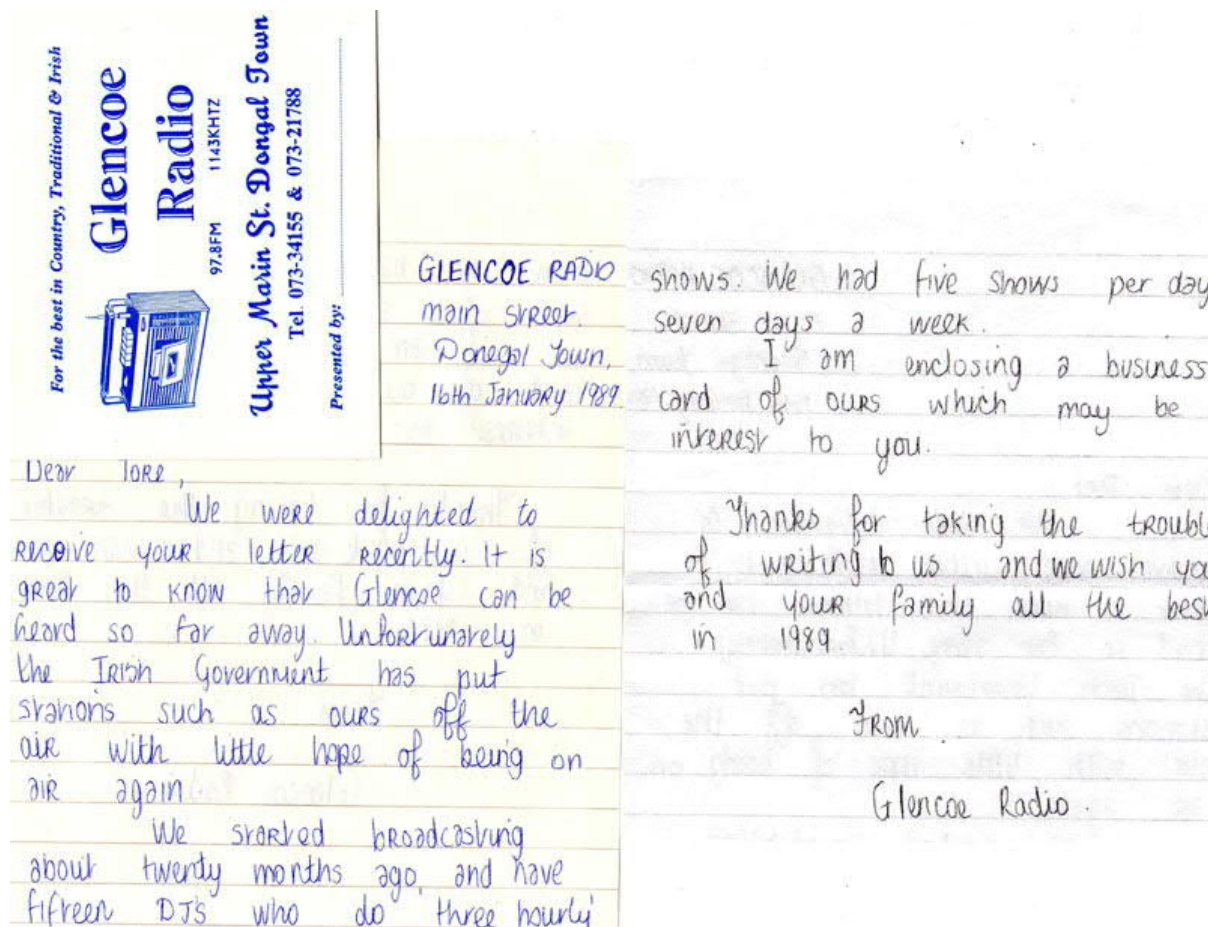 For the best in Country, Traditional & Irish
Glencoe
Radio
97.8FM 1143KHTZ
Upper Marin St. Dongal Town
Tel. 073-34155 & 073-21788
Presented by:
GLENCOE RADIO
main street.
Donegal Town,
16th January 1989
Dear Tore,
We were delighted to
receive your letter recently. It is
great to know that Glencoe can be
heard so far away. Unfortunately
the Irish Government has put
stations such as ours off the
air with little hope of being on
air again
We started broadcasting
about twenty months ago, and have
fifteen DJ's who do three hourly
shows. We had five shows per day
seven days a week.
I am enclosing a business
card of ours which may be
interest to you.
Thanks for taking the trouble
of writing to us and we wish you
and your family all the best
in 1989.
From.
Glencoe Radio.